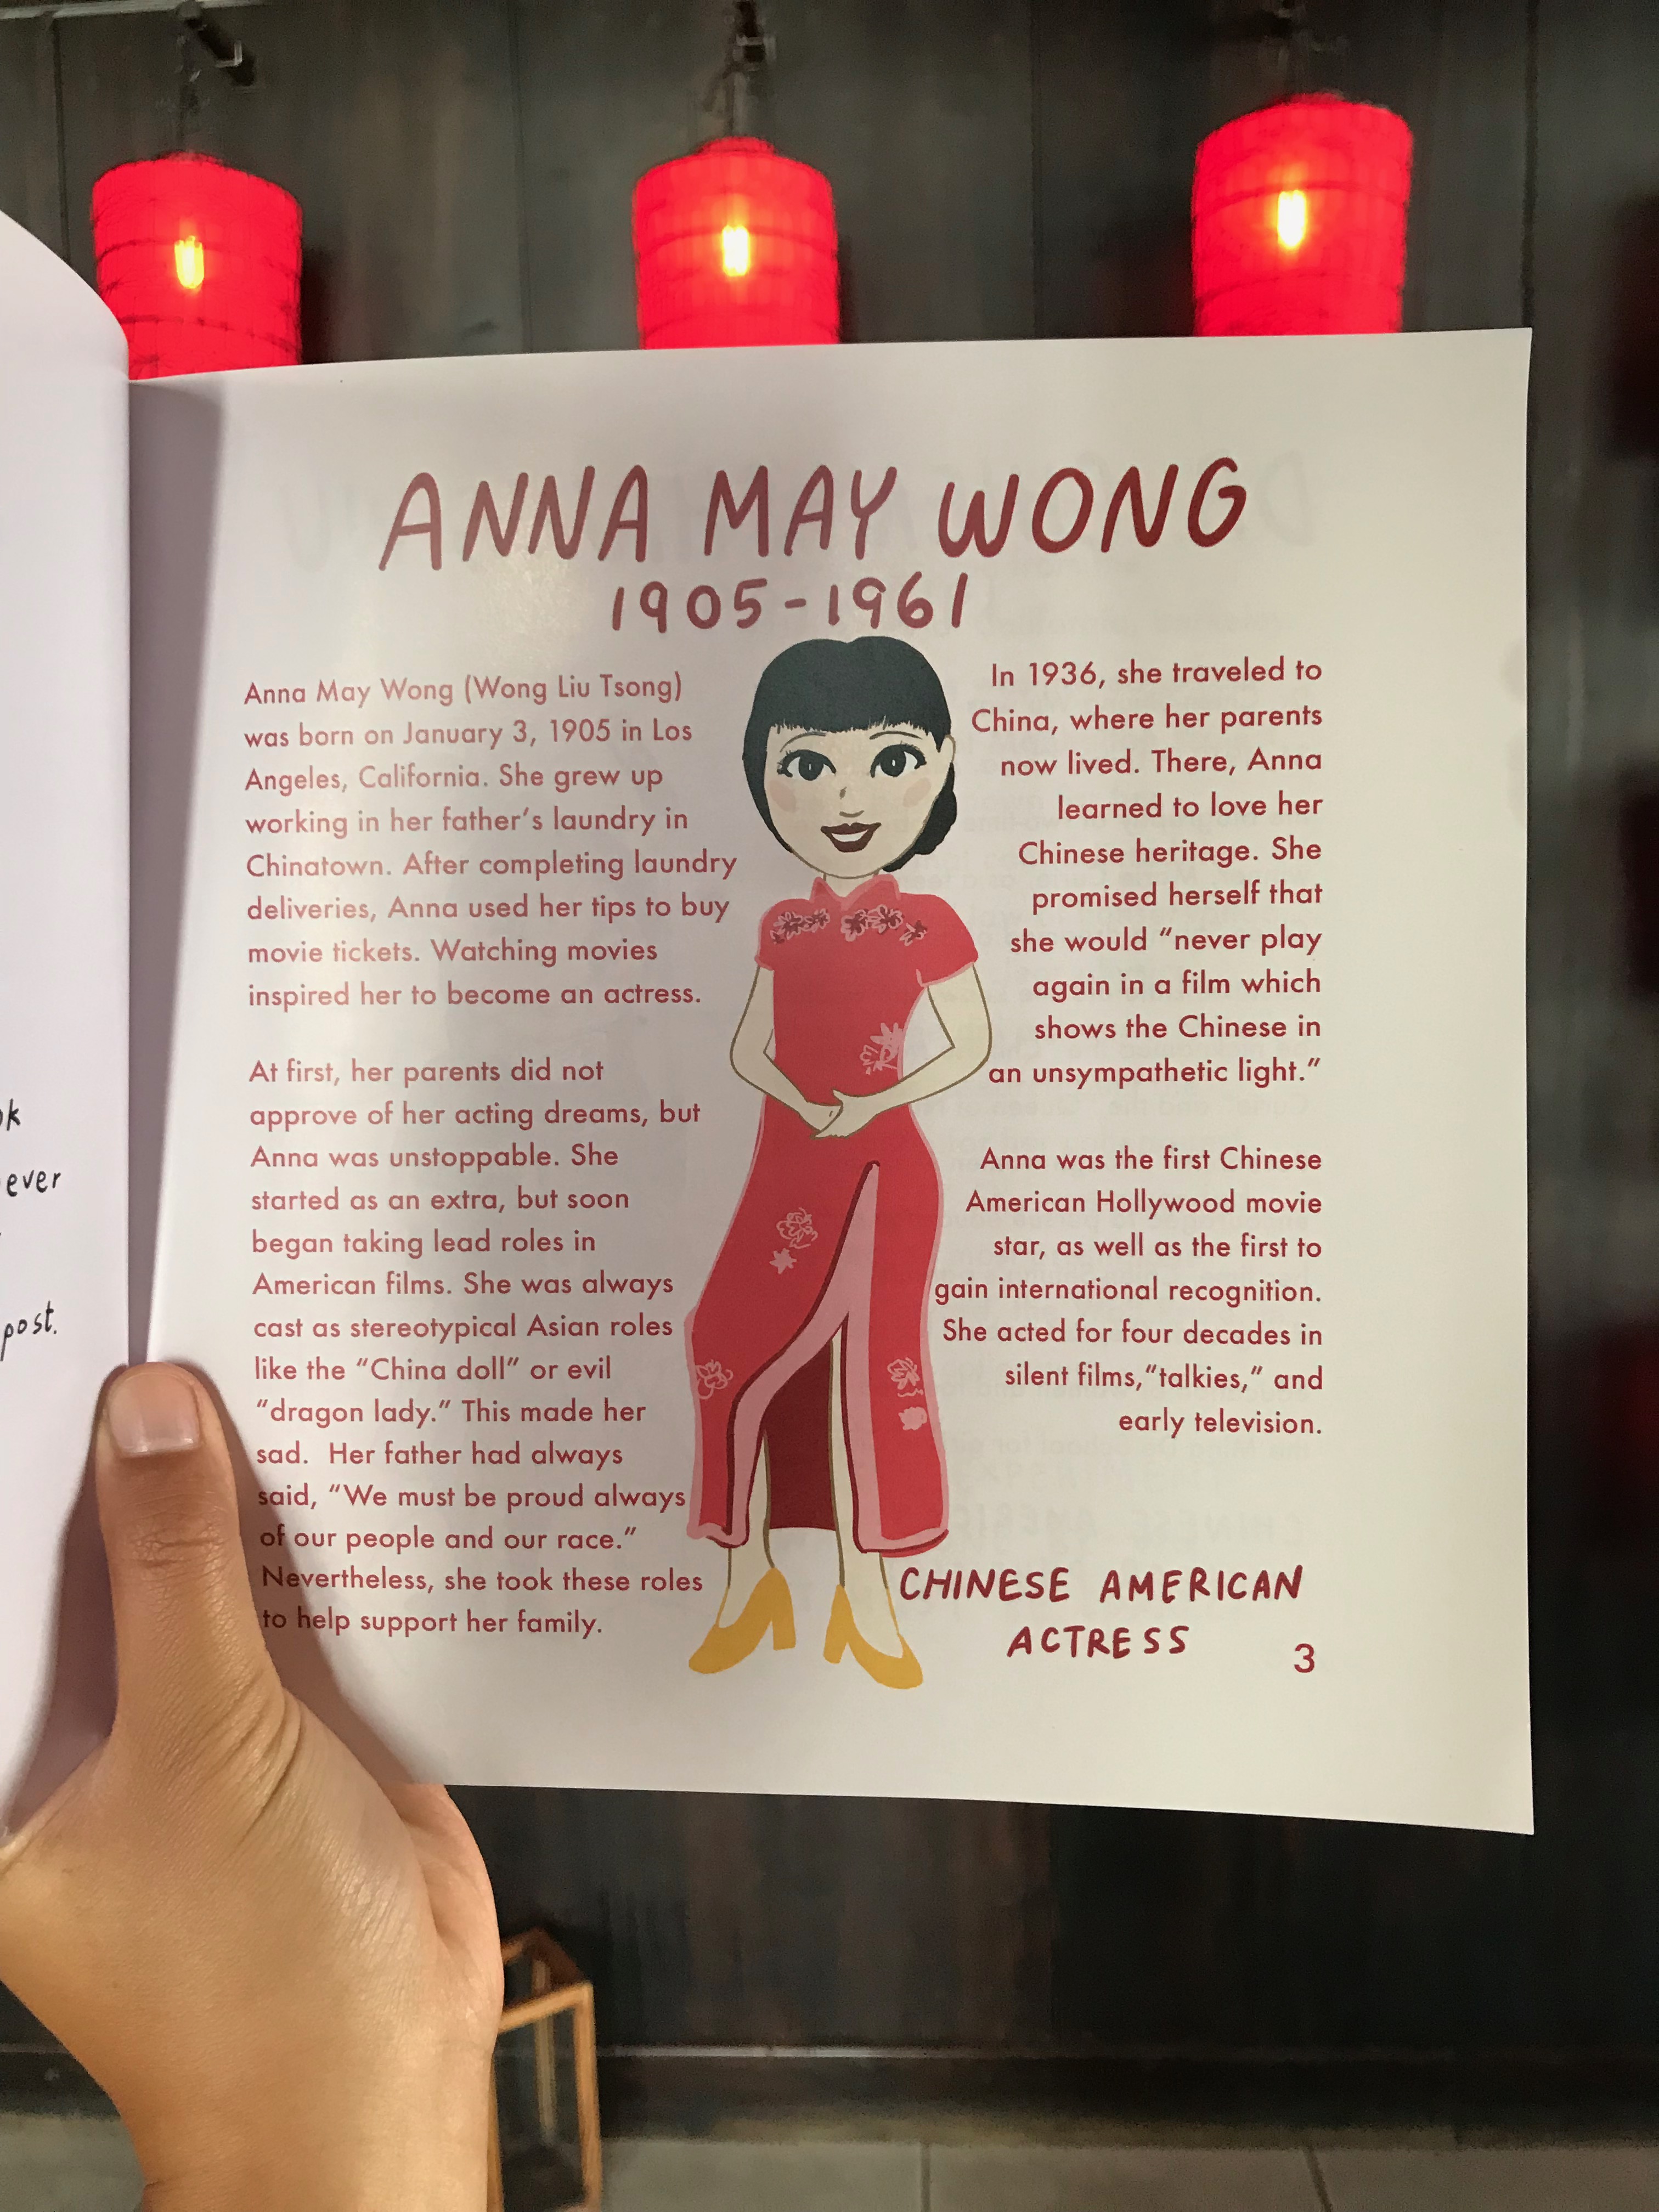 ok
ever
post.
ANNA MAY WONG
1905-1961
Anna May Wong (Wong Liu Tsong)
was born on January 3, 1905 in Los
Angeles, California. She grew up
working in her father's laundry in
Chinatown. After completing laundry
deliveries, Anna used her tips to buy
movie tickets. Watching movies
inspired her to become an actress.
At first, her parents did not
approve of her acting dreams, but
Anna was unstoppable. She
started as an extra, but soon
began taking lead roles in
American films. She was always
cast as stereotypical Asian roles
like the “China doll” or evil
“dragon lady.” This made her
sad. Her father had always
said, “We must be proud always
of our people and our race.”
Nevertheless, she took these roles
to help support her family.
In 1936, she traveled to
China, where her parents
now lived. There, Anna
learned to love her
Chinese heritage. She
promised herself that
she would “never play
again in a film which
shows the Chinese in
an unsympathetic light.”
Anna was the first Chinese
American Hollywood movie
star, as well as the first to
gain international recognition.
She acted for four decades in
silent films,“talkies,” and
early television.
CHINESE AMERICAN
ACTRESS
3